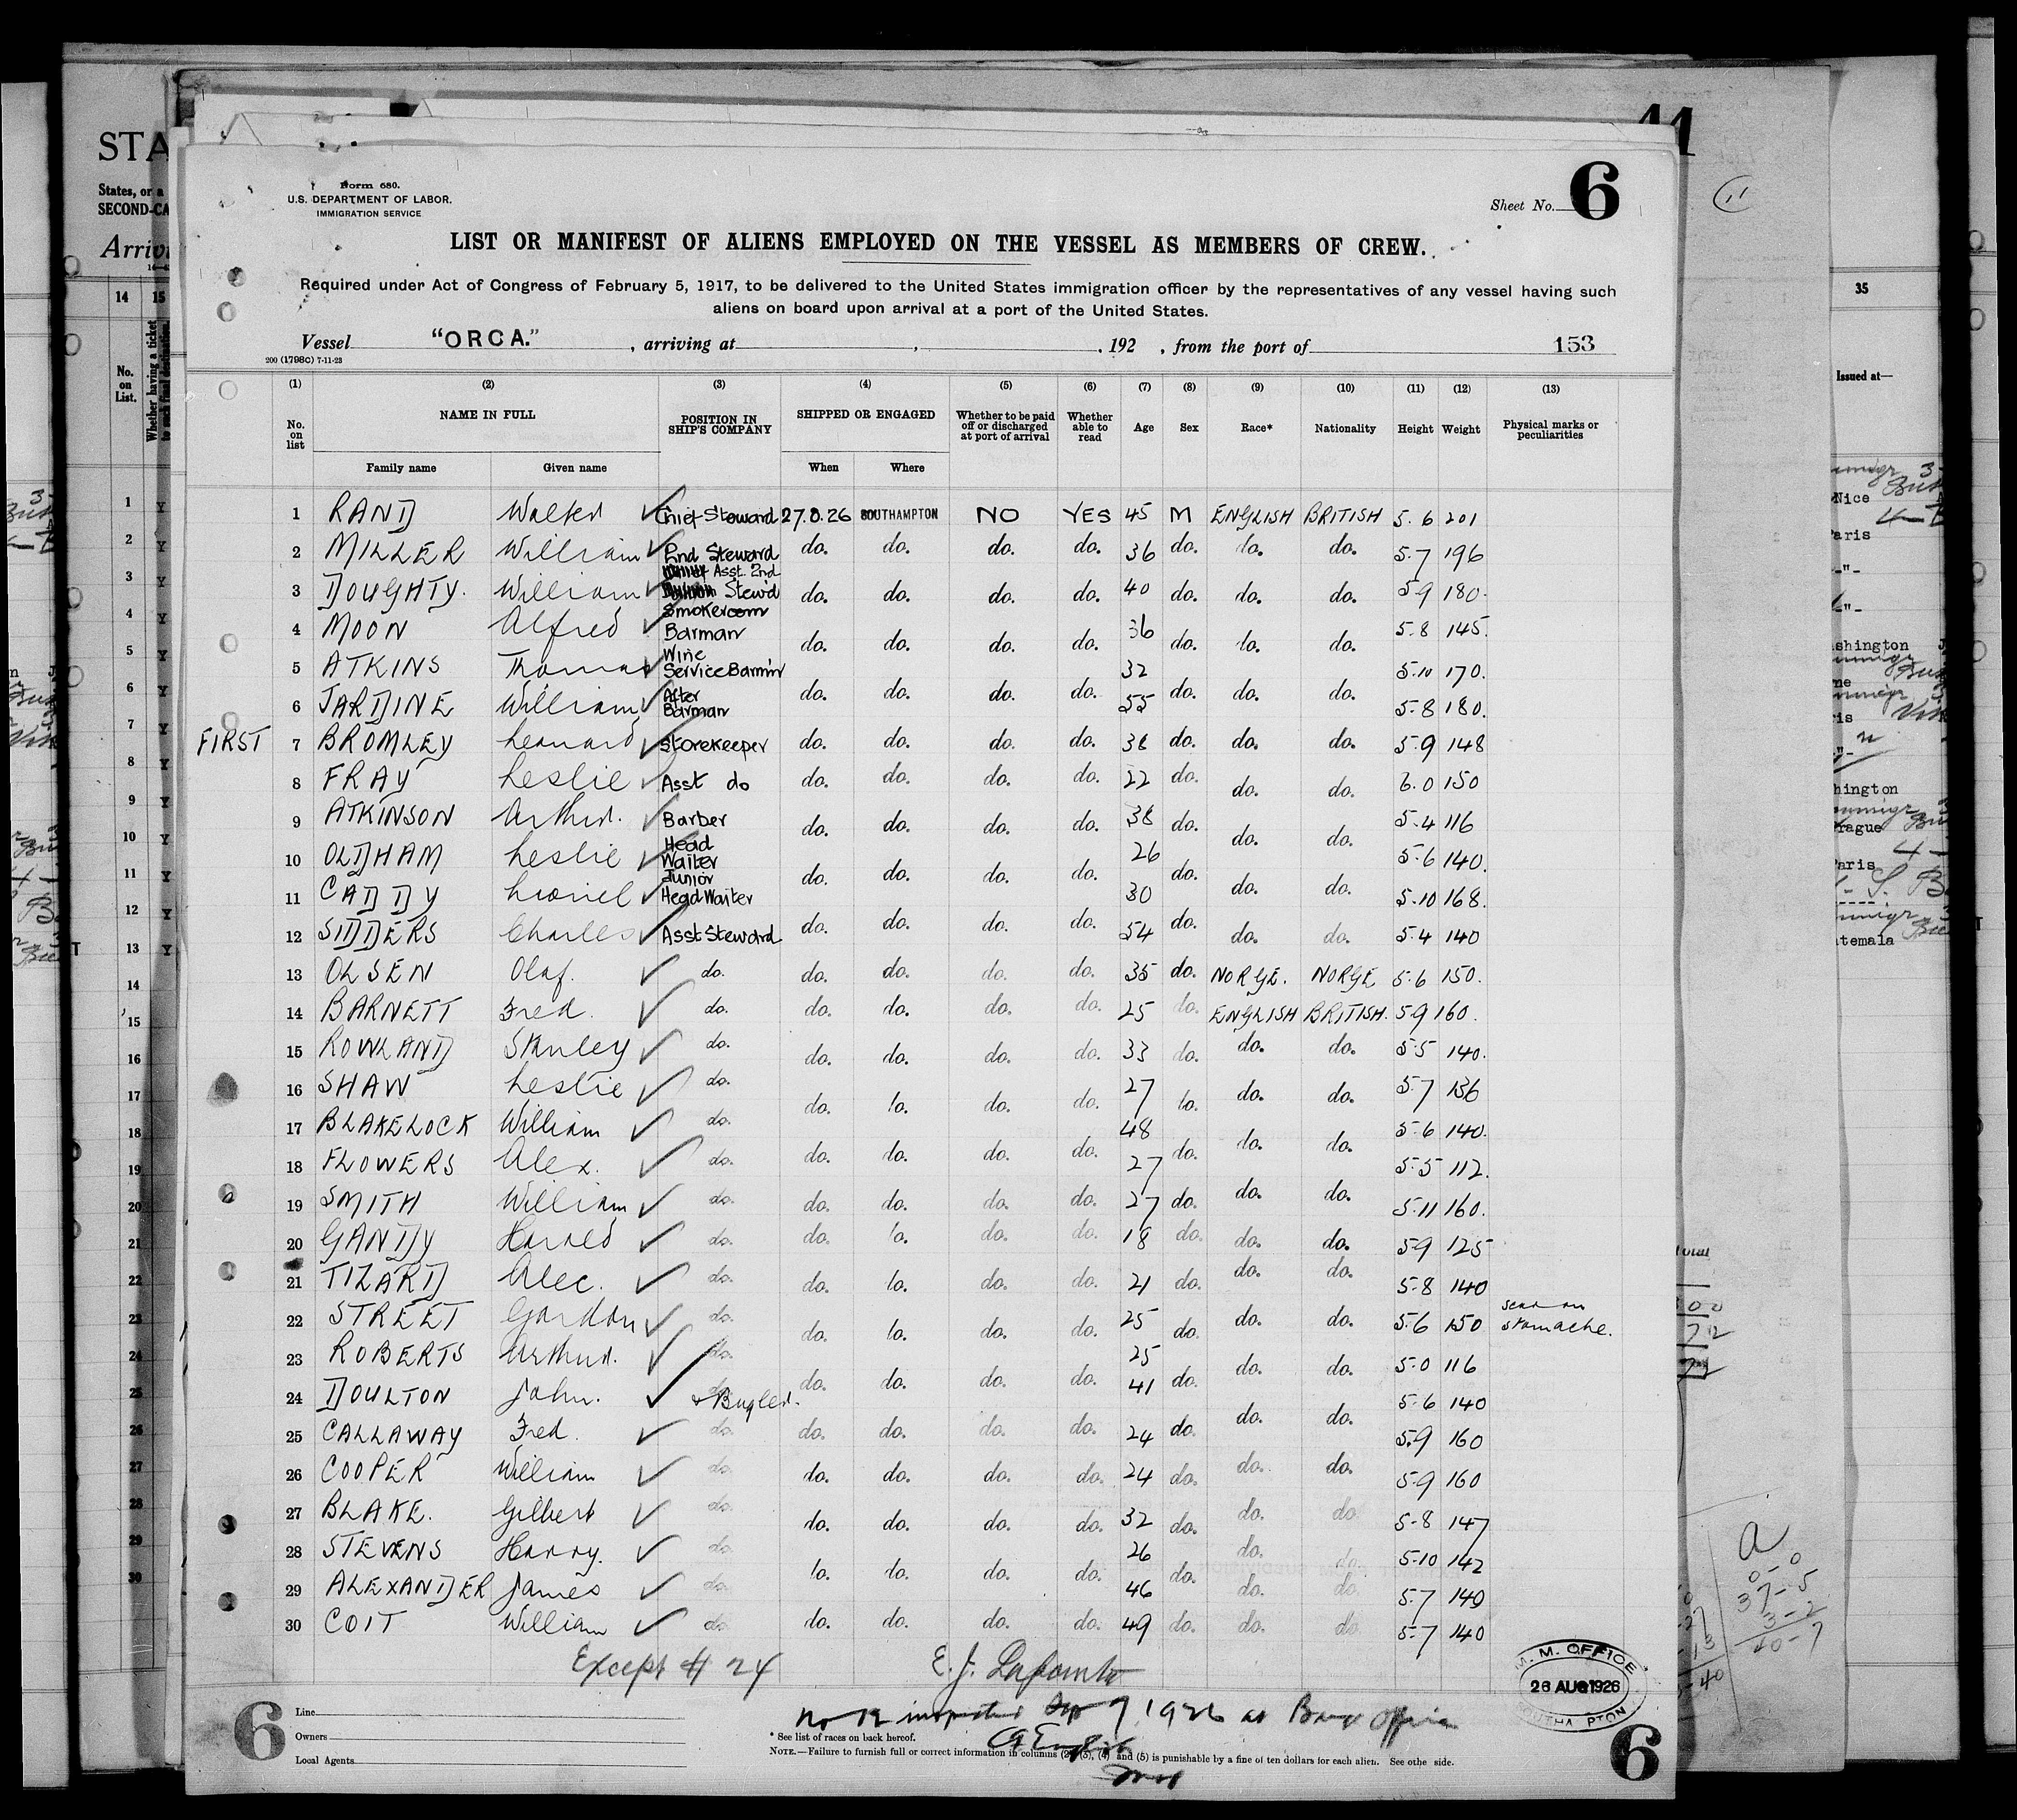 Form 680.
U.S. DEPARTMENT OF LABOR.
IMMIGRATION SERVICE
Sheet No. 6
LIST OR MANIFEST OF ALIENS EMPLOYED ON THE VESSEL AS MEMBERS OF CREW.
Required under Act of Congress of February 5, 1917, to be delivered to the United States immigration officer by the representatives of any vessel having such
aliens on board upon arrival at a port of the United States.
Vessel "ORCA." , arriving at , , 192 , from the port of 153
200 (1798c) 7-11-23
(1) (2) (3) (4) (5) (6) (7) (8) (9) (10) (11) (12) (13)
No. on list NAME IN FULL POSITION IN SHIP'S COMPANY SHIPPED OR ENGAGED Whether to be paid off or discharged at port of arrival Whether able to read Age Sex Race* Nationality Height Weight Physical marks or peculiarities
Family name Given name When Where
1 RAND Walter Chief Steward 27.8.26 SOUTHAMPTON NO YES 45 M ENGLISH BRITISH 5.6 201
2 MILLER William 2nd Steward do. do. do. do. 36 do. do. do. 5.7 196
3 DOUGHTY. William Asst. 2nd Stew'd do. do. do. do. 40 do. do. do. 5.9 180.
4 MOON Alfred Smokeroom Barman do. do. do. do. 36 do. do. do. 5.8 145.
5 ATKINS Thomas Wine Service Barm'n 32 5.10 170.
6 JARDINE William After Barman do. do. do. do. 55 do. do. do. 5.8 180.
FIRST 7 BROMLEY Leonard Storekeeper do. do. do. do. 38 do. do. do. 5.9 148
8 FRAY Leslie Asst do do. do. do. do. 22 do. do. do. 6.0 150
9 ATKINSON Arthur. Barber do. do. do. do. 38 do. do. do. 5.4 116
10 OLDHAM Leslie Head Waiter 26 5.6 140.
11 CADDY Lionel Junior Head Waiter do. do. do. do. 30 do. do. do. 5.10 168.
12 SIDDERS Charles Asst Steward do. do. do. do. 54 do. do. do. 5.4 140
13 OLSEN Olaf. do. do. do. do. do. 35 do. NORGE. NORGE 5.6 150.
14 BARNETT Fred. do. do. do. do. do. 25 do. ENGLISH BRITISH. 5.9 160.
15 ROWLAND Stanley do. do. do. do. do. 33 do. do. do. 5.5 140.
16 SHAW Leslie do. do. do. do. do. 27 do. do. do. 5.7 136
17 BLAKELOCK William do. 48 do. do. 5.6 140.
18 FLOWERS Alex. do. do. do. do. do. 27 do. 5.5 112.
19 SMITH William do. do. do. do. do. 27 do. do. do. 5.11 160.
20 GANDY Harold do. do. do. do. do. 18 do. do. do. 5.9 125
21 TIZARD Alec. do. do. do. do. do. 21 do. do. do. 5.8 140
22 STREET Gordon do. do. do. do. do. 25 do. do. do. 5.6 150 scar on stomache.
23 ROBERTS Arthur. do. 25 do. do. 5.0 116
24 DOULTON John. do. & Bugler. do. do. do. do. 41 do. do. do. 5.6 140
25 CALLAWAY Fred. do. do. do. do. do. 24 do. 5.9 160
26 COOPER William do. do. do. do. do. 24 do. do. do. 5.9 160
27 BLAKE. Gilbert do. do. do. do. do. 32 do. do. do. 5.8 147
28 STEVENS Harry. do. 26 do. do. 5.10 142
29 ALEXANDER James do. do. do. do. do. 46 do. do. do. 5.7 140
30 COIT William do. do. do. do. do. 49 do. do. do. 5.7 140
Except # 24
No 12 inspected Sep 7 1926 at Barge Office
26 AUG 1926
Line
Owners
Local Agents
* See list of races on back hereof.
NOTE.—Failure to furnish full or correct information in columns (2), (3), (4) and (5) is punishable by a fine of ten dollars for each alien. See other side.
6
6
STA
States, or a
SECOND-CA
14 15
No. on List.
Whether having a ticket to such final destination.
35
Issued at—
Nice
Paris
ashington
hington
Prague
Paris
atemala